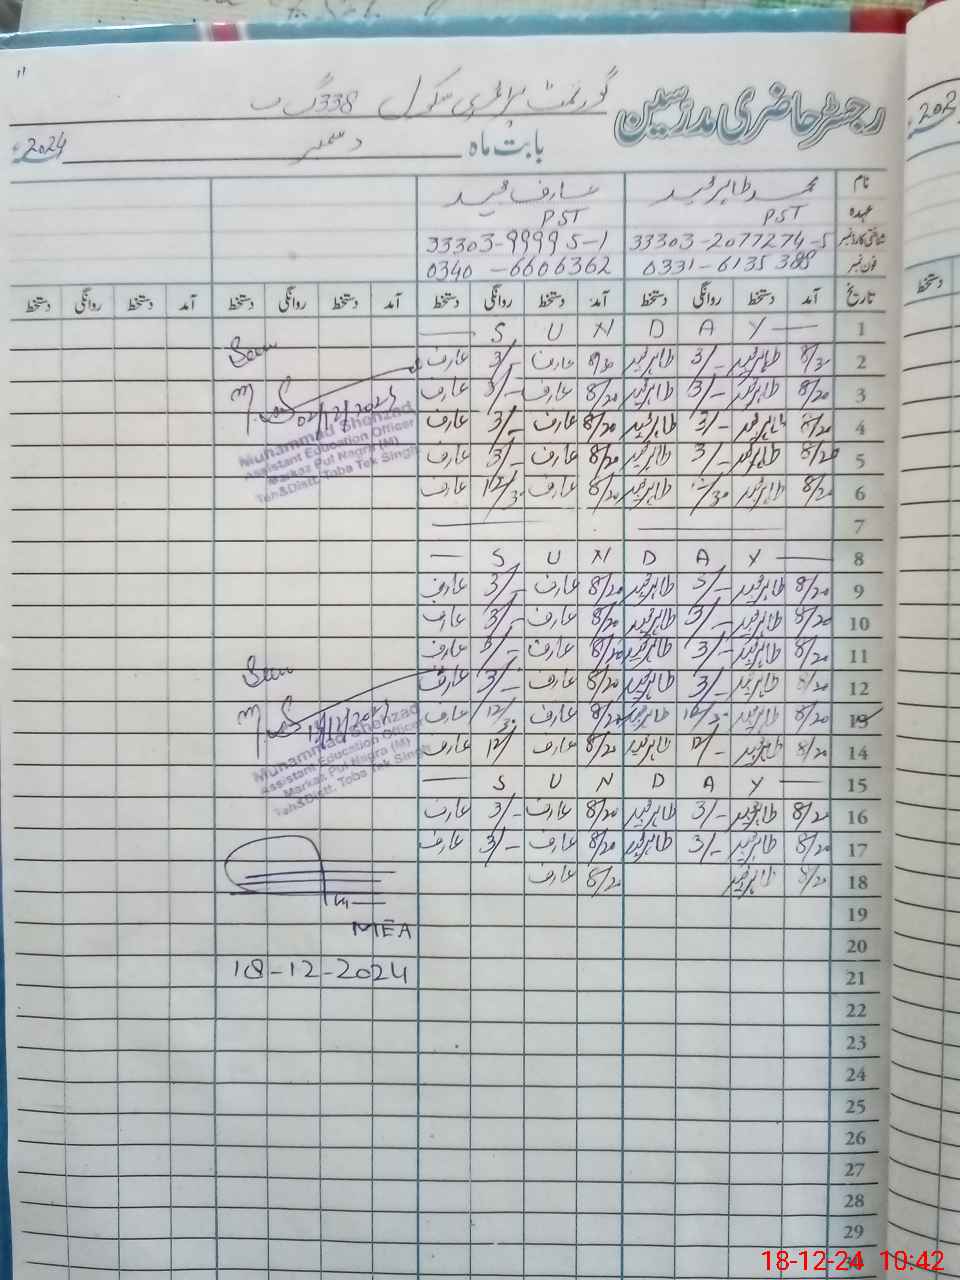 رجسٹر حاضری مدرسین گورنمنٹ پرائمری سکول 338 گ ب
بابت ماہ دسمبر 2024ء
نام محمد طاہر عارف
عہدہ PST PST
شناختی کارڈ نمبر 33303-2077274-5 33303-99995-1
فون نمبر 0331-6135388 0340-6606362
تاریخ آمد دستخط روانگی دستخط آمد دستخط روانگی دستخط آمد دستخط روانگی دستخط آمد دستخط روانگی دستخط
1 — S U N D A Y —
2 8/30 طاہر 3/- طاہر 8/30 عارف 3/- عارف Seen
3 8/20 طاہر 3/- طاہر 8/20 عارف 3/- عارف 02/12/2024
4 8/20 طاہر 3/- طاہر 8/20 عارف 3/- عارف Muhammad Shehzad
Assistant Education Officer
5 8/20 طاہر 3/- طاہر 8/20 عارف 3/- عارف Markaz Pul Nagra (M)
6 8/20 طاہر 12/30 طاہر 8/20 عارف 12/30 عارف Teh&Distt. Toba Tek Singh
7
8 — S U N D A Y —
9 8/20 طاہر 3/- طاہر 8/20 عارف 3/- عارف
10 8/20 طاہر 3/- طاہر 8/20 عارف 3/- عارف
11 8/20 طاہر 3/- طاہر 8/20 عارف 3/- عارف
12 8/20 طاہر 3/- طاہر 8/20 عارف 3/- عارف Seen
13 8/20 طاہر 12/30 طاہر 8/20 عارف 12/30 عارف
14 8/20 طاہر 12/- طاہر 8/20 عارف 12/ عارف Muhammad Shehzad
Assistant Education Officer
15 — S U N D A Y — Markaz Pul Nagra (M)
Teh&Distt. Toba Tek Singh
16 8/20 طاہر 3/- طاہر 8/20 عارف 3/- عارف
17 8/20 طاہر 3/- طاہر 8/20 عارف 3/- عارف
18 8/20 طاہر 8/20 عارف
19 MEA
20
21 18-12-2024
22
23
24
25
26
27
28
29
30
18-12-24 10:42